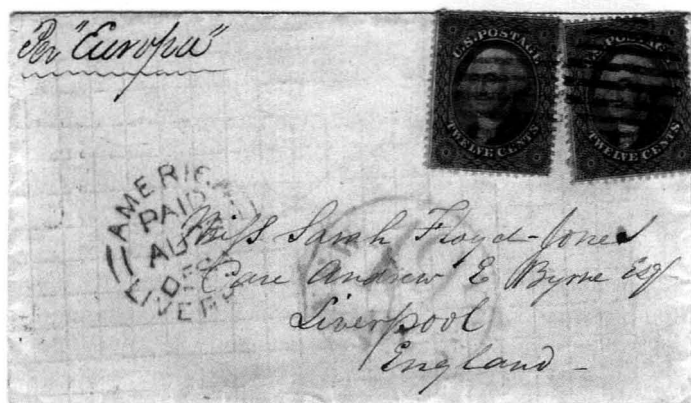 Per "Europa"
U.S. POSTAGE
TWELVE CENTS
U.S. POSTAGE
TWELVE CENTS
AMERICA
PAID
LIVER
Miss Sarah Floyd-Jones
Care Andrew E Byrne Esq
Liverpool
England